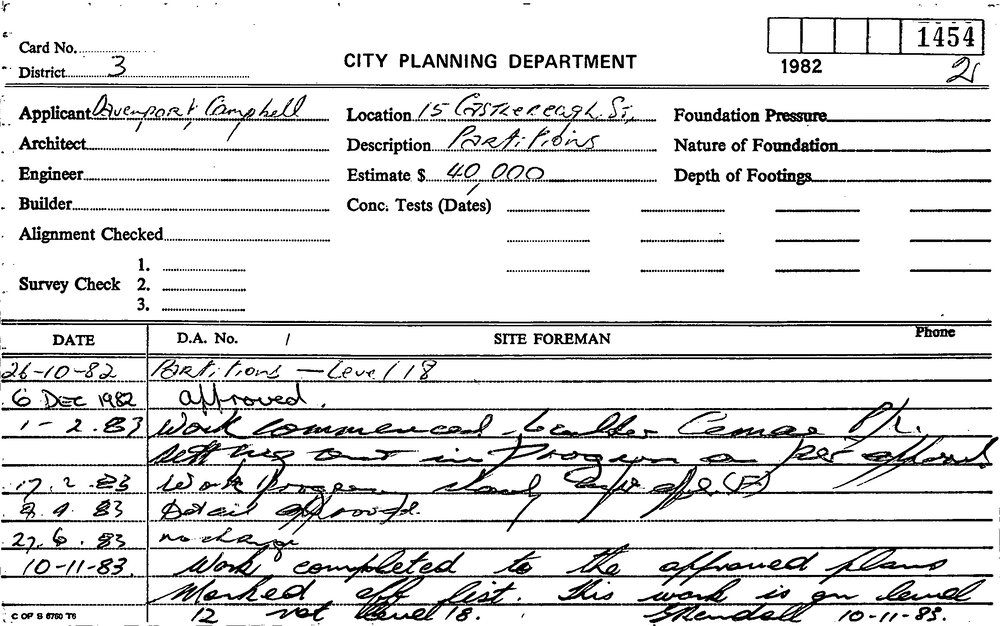 Card No.
District 3
CITY PLANNING DEPARTMENT
1454
1982
2
Applicant Davenport, Campbell
Location 15 Castlereagh St,
Foundation Pressure
Architect
Description Partitions
Nature of Foundation
Engineer
Estimate $ 40,000
Depth of Footings
Builder
Conc. Tests (Dates)
Alignment Checked
Survey Check
1.
2.
3.
DATE
D.A. No. /
SITE FOREMAN
Phone
26-10-82 Partitions — Level 18
6 DEC 1982 approved.
1-2.83 Work commenced builder P/L.
setting out in Program as per approval
17.2.83 Work Program
8.4.83 Detail approved.
27.6.83 no change
10-11-83. Work completed to the approved plans
Marked off list. This work is on level
12 not level 18. 10-11-83.
C OF S 6750 T6